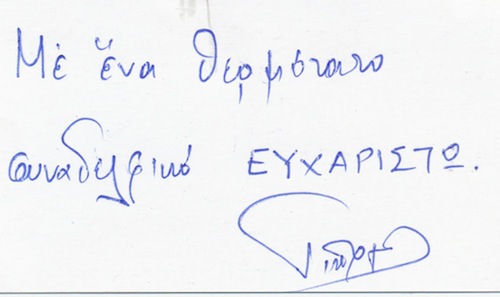 Μέ ἕνα θερμότατο
συναδελφικό ΕΥΧΑΡΙΣΤΩ.